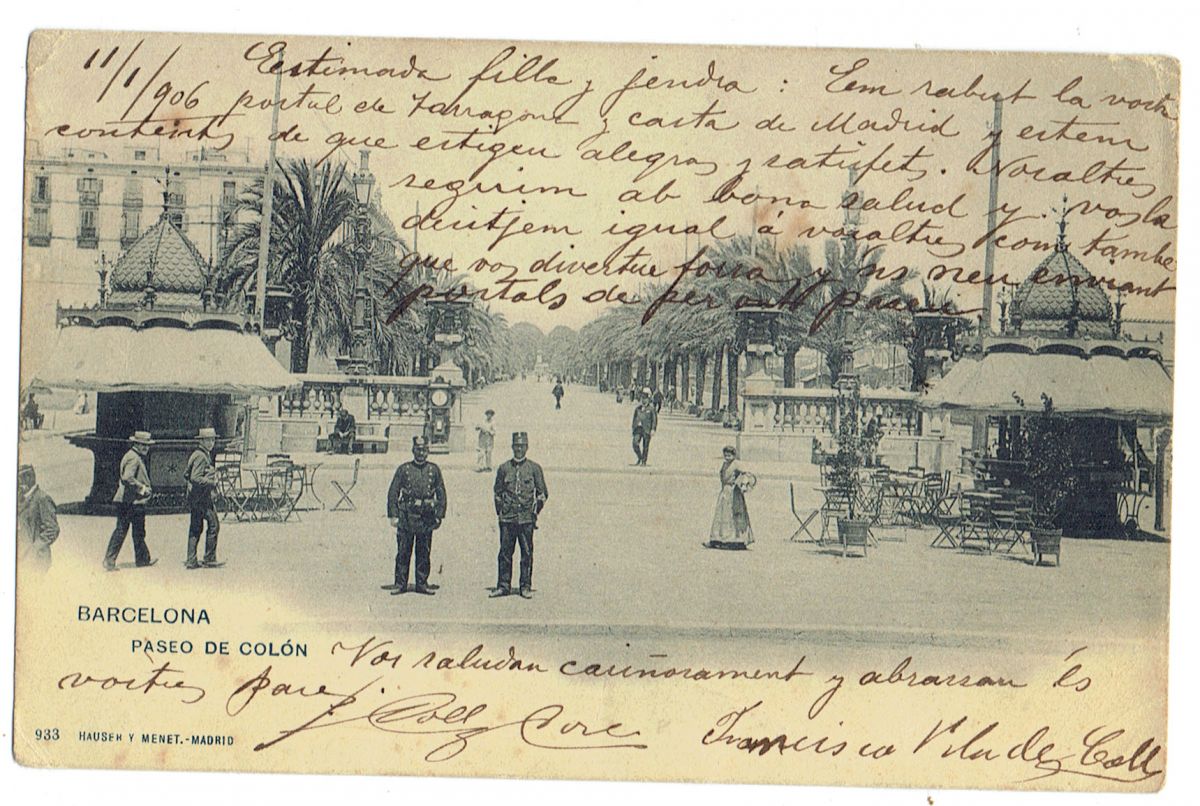 11/1/906 Estimada filla y jendra : Em rabut la vostra
postal de Tarragona y carta de Madrid y estem
contents de que estigeu alegras y satisfets. Nosaltres
seguim ab bona salud y vos la
desitjem igual á vosaltres com tambe
que vos divertiu forsa y 'ns neu enviant
postals de per
BARCELONA
PASEO DE COLÓN
Vos saludan cariñosament y abrassan és
vostres pares
J. Coll y
Francisca Vila de Coll
933 HAUSER Y MENET.-MADRID